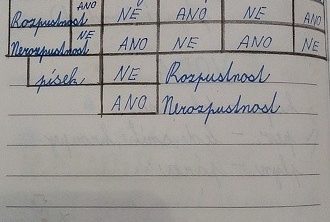 ANO
Rozpustnost NE ANO NE ANO
NE
Nerozpustnost ANO NE ANO NE
písek NE Rozpustnost
ANO Nerozpustnost